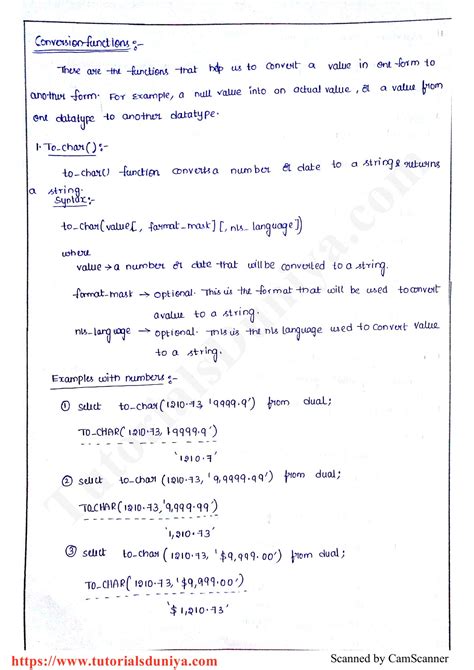 Conversion functions :-
These are the functions that help us to convert a value in one form to
another form. For Example, a null value into an actual value, or a value from
one datatype to another datatype.
1. To_char() :-
to_char() function converts a number or date to a string & returns
a string.
Syntax :-
to_char(value[, format_mask][, nls_language])
where
value → a number or date that will be converted to a string.
format-mask → optional. This is the format that will be used to convert
a value to a string.
nls_language → optional. This is the nls language used to convert value
to a string.
Examples with numbers :-
① select to_char (1210.73, '9999.9') from dual;
TO_CHAR(1210.73, '9999.9')
'1210.7'
② select to_char (1210.73, '9,9999.99') from dual;
TO_CHAR (1210.73, '9,999.99')
'1,210.73'
③ select to_char (1210.73, '$9,999.00') from dual;
TO_CHAR (1210.73, '$9,999.00')
'$1,210.73'
TutorialsDuniya.com
https://www.tutorialsduniya.com
Scanned by CamScanner